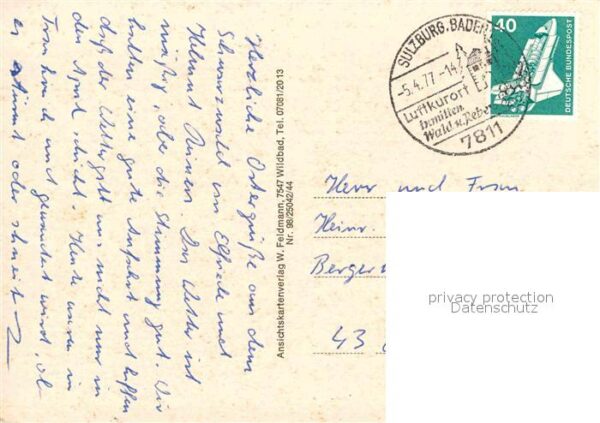 Herzliche Ostergrüße aus dem
Schwarzwald von Elfriede und
Helmut Das Wetter ist
mäßig aber die Stimmung gut. Wir
hatten eine gute Anfahrt und hoffen
daß der Wettergott uns nicht nur in
den April schickt. Heute waren wir in
und gewandert wird, ob
es stürmt oder schneit
Ansichtskartenverlag W. Feldmann, 7547 Wildbad, Tel. 07081/2013
Nr. 98/25042/44
SULZBURG, BADEN
-5.4.77-14
Luftkurort
inmitten
Wald u. Rebe
7811
40
DEUTSCHE BUNDESPOST
Herr und Frau
Heinr.
Berger
43
privacy protection
Datenschutz